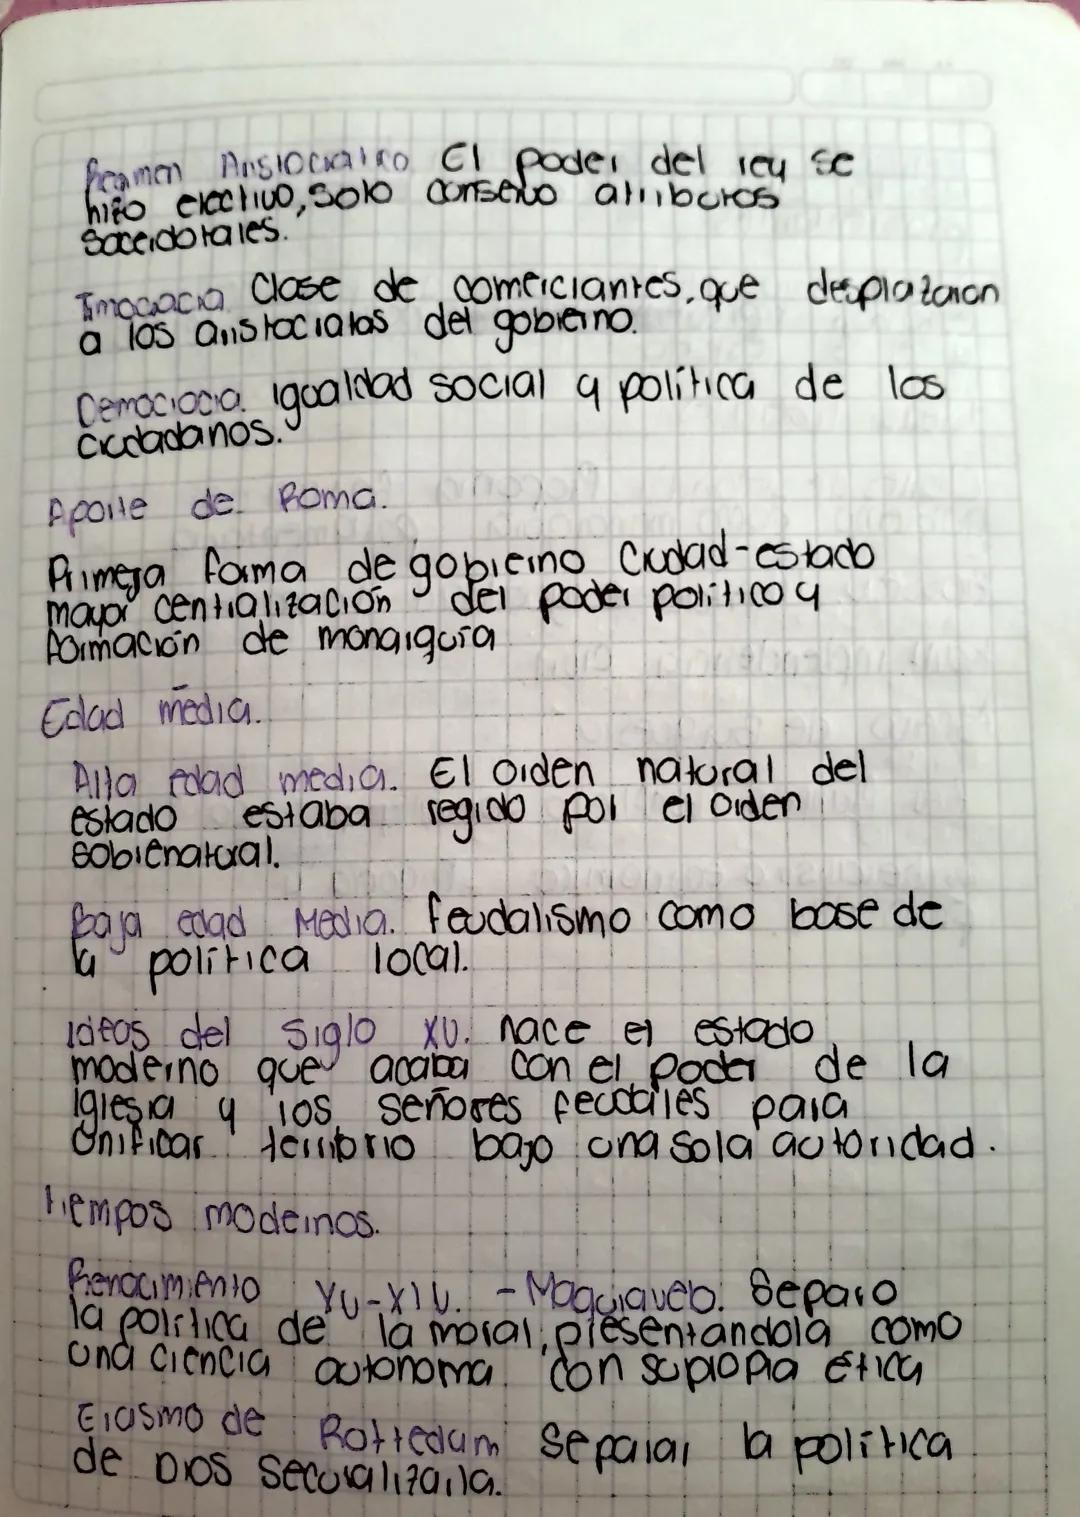 Regimen Aristocratico El poder del rey se
hizo electivo, solo conservo atributos
sacerdotales.
Timocacia Clase de comerciantes, que desplazaron
a los aristocratas del gobierno.
Democracia. igualdad social y política de los
ciudadanos.
Aporte de Roma.
Primera forma de gobierno Ciudad-estado
mayor centralización del poder político y
formación de monarquía
Edad média.
Alta edad media. El orden natural del
estado estaba regido por el orden
sobrenatural.
Baja edad Media. feudalismo como base de
la política local.
Ideas del Siglo XV. nace el estado
moderno que acaba con el poder de la
iglesia y los señores feudales para
unificar territorio bajo una sola autoridad.
tiempos modernos.
Renacimiento XV-XIV. - Maquiavelo. Separo
la política de la moral, presentandola como
una ciencia autonoma con su propia ética
Erasmo de Rotterdam Separar la política
de Dios secularizarla.